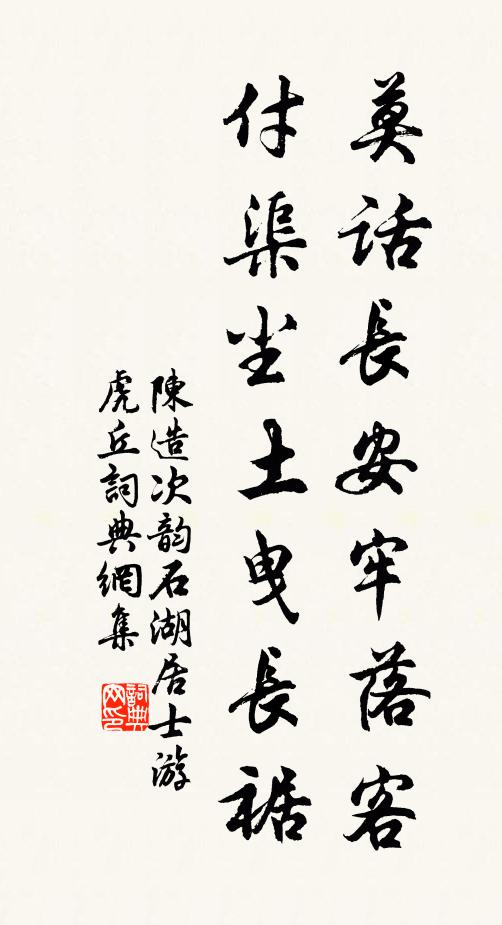 莫话長安牢落客
付渠尘土曳長裾
陳造次韵石湖居士游
虎丘詞典網集
詞典网印